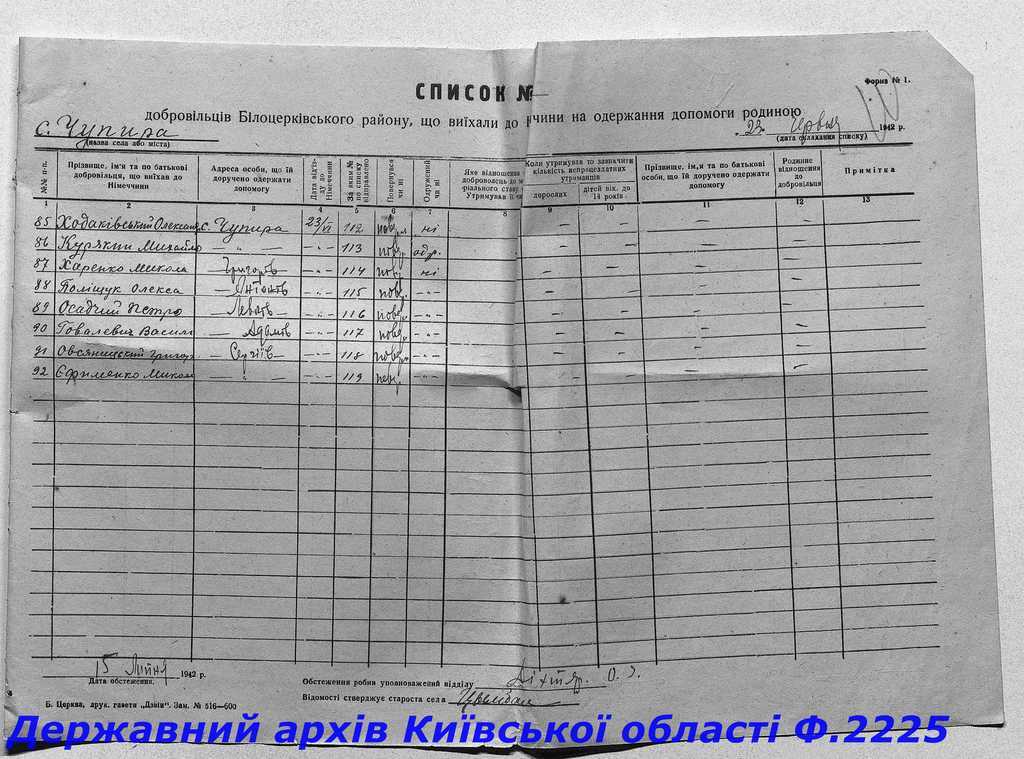 Форма № 1.
СПИСОК №
добровільців Білоцерківського району, що виїхали до чини на одержання допомоги родиною
с. Чупира
(назва села або міста)
23 червня 1942 р.
(дата складання списку)
№№ п-п. Прізвище, ім'я та по батькові добровільця, що виїхав до Німеччини Адреса особи, що їй доручено одержати допомогу Дата від'їзду до Німеччини За яким № по списку відправлено Повернувся чи ні Одружений чи ні Яке відношення Утримував Коли утримував то зазначити кількість непрацездатних утриманців дорослих дітей вік. до 14 років Прізвище, ім'я та по батькові особи, що їй доручено одержати допомогу Родинне відношення до добровільця Примітка
1 2 3 4 5 6 7 8 9 10 11 12 13
85 Ходаківський Олександ с. Чупира 23/VI 112 ні – – – –
86 Курякти Михайло – " – – " – 113 пов. одр. – – – –
87 Харенко Микола Григорів – " – 114 пов. ні – – – –
88 Поліщук Олекса Антонів – " – 115 пов. – " – – – – –
89 Осадчий Петро Львов – " – 116 пов. – " – – – – –
90 Говалевич Васил Адамов – " – 117 пов. – " – – – – –
91 Овсяницький Григор Сергіїв – " – 118 пов. – " – – – – –
92 Єфименко Микол – " – – " – 119 – " – – – – –
15 Липня 1942 р.
Дата обстеження.
Обстеження робив уповноважений відділу Діхтяр. О. З.
Відомості стверджує староста села Цимбал
Б. Церква, друк. газети „Дзвін". Зам. № 516—600
Державний архів Київської області Ф.2225